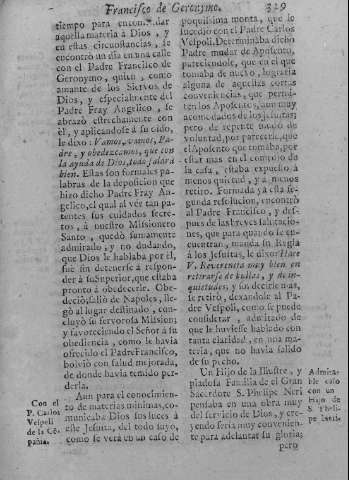 Francisco de Geronymo. 319
tiempo para encomendar
aquella materia à Dios, y
en estas circunstancias, se
encontrò un dia en una calle
con el Padre Francisco de
Geronymo, quien, como
amante de los Siervos de
Dios, y especialmente del
Padre Fray Angelico, se
abrazò estrechamente con
èl, y aplicandose à su oìdo,
le dixo: Vamos, vamos, Pa-
dre, y obedezcamos, que con
la ayuda de Dios, todo saldrà
bien. Estas son formales pa-
labras de la deposicion que
hizo dicho Padre Fray An-
gelico, el qual al vèr tan pa-
tentes sus cuidados secre-
tos, à nuestro Missionero
Santo, quedò sumamente
admirado, y no dudando,
que Dios le hablaba por èl,
fue sin detenerse à respon-
der à su Superior, que estaba
prompto à obedecerle. Obe-
deciò, saliò de Napoles, lle-
gò al lugar destinado, con-
cluyò su fervorosa Mission;
y favoreciendo el Señor à su
obediencia, como le havia
ofrecido el Padre Francisco,
bolviò con salud mejorada,
de donde havia temido per-
derla.
Aun para el conocimien-
to de materias minimas, co-
municaba Dios sus luces à
este Jesuita, del todo suyo,
como se verà en un caso de
Con el
P. Carlos
Velpoli
de la Cõ-
pañia.
poquissima monta, que le
sucediò con el Padre Carlos
Velpoli. Determinaba dicho
Padre mudar de Aposento,
pareciendole, que en el que
tomaba de nuevo, lograria
alguna de aquellas cortas
conveniencias, que permi-
ten los Aposentos, aun muy
acomodados de los Jesuitas;
pero de repente mudò de
voluntad, por parecerle, que
el Aposento que tomaba, por
estar mas en el comercio de
la casa, estaba expuesto à
menos quietud, y à menos
retiro. Formada yà esta se-
gunda resolucion, encontrò
al Padre Francisco, y des-
pues de las breves salutacio-
nes, que para quando se en-
cuentran, manda su Regla
à los Jesuitas, le dixo: Hace
V. Reverencia muy bien en
retirarse de bullas, y de in-
quietudes; y sin decirle mas,
se retirò, dexando al Padre
Velpoli, como se puede
considerar, admirado de
que le huviesse hablado con
tanta claridad, en una ma-
teria, que no havia salido
de su pecho.
Un Hijo de la Ilustre, y
piadosa Familia de el Gran
Sacerdote S. Phelipe Neri
pensaba en una obra muy
del servicio de Dios, y cre-
yendo seria muy convenien-
te para adelantar su gloria;
pero
Admira-
ble caso
con un
Hijo de
S. Pheli-
pe Neri.